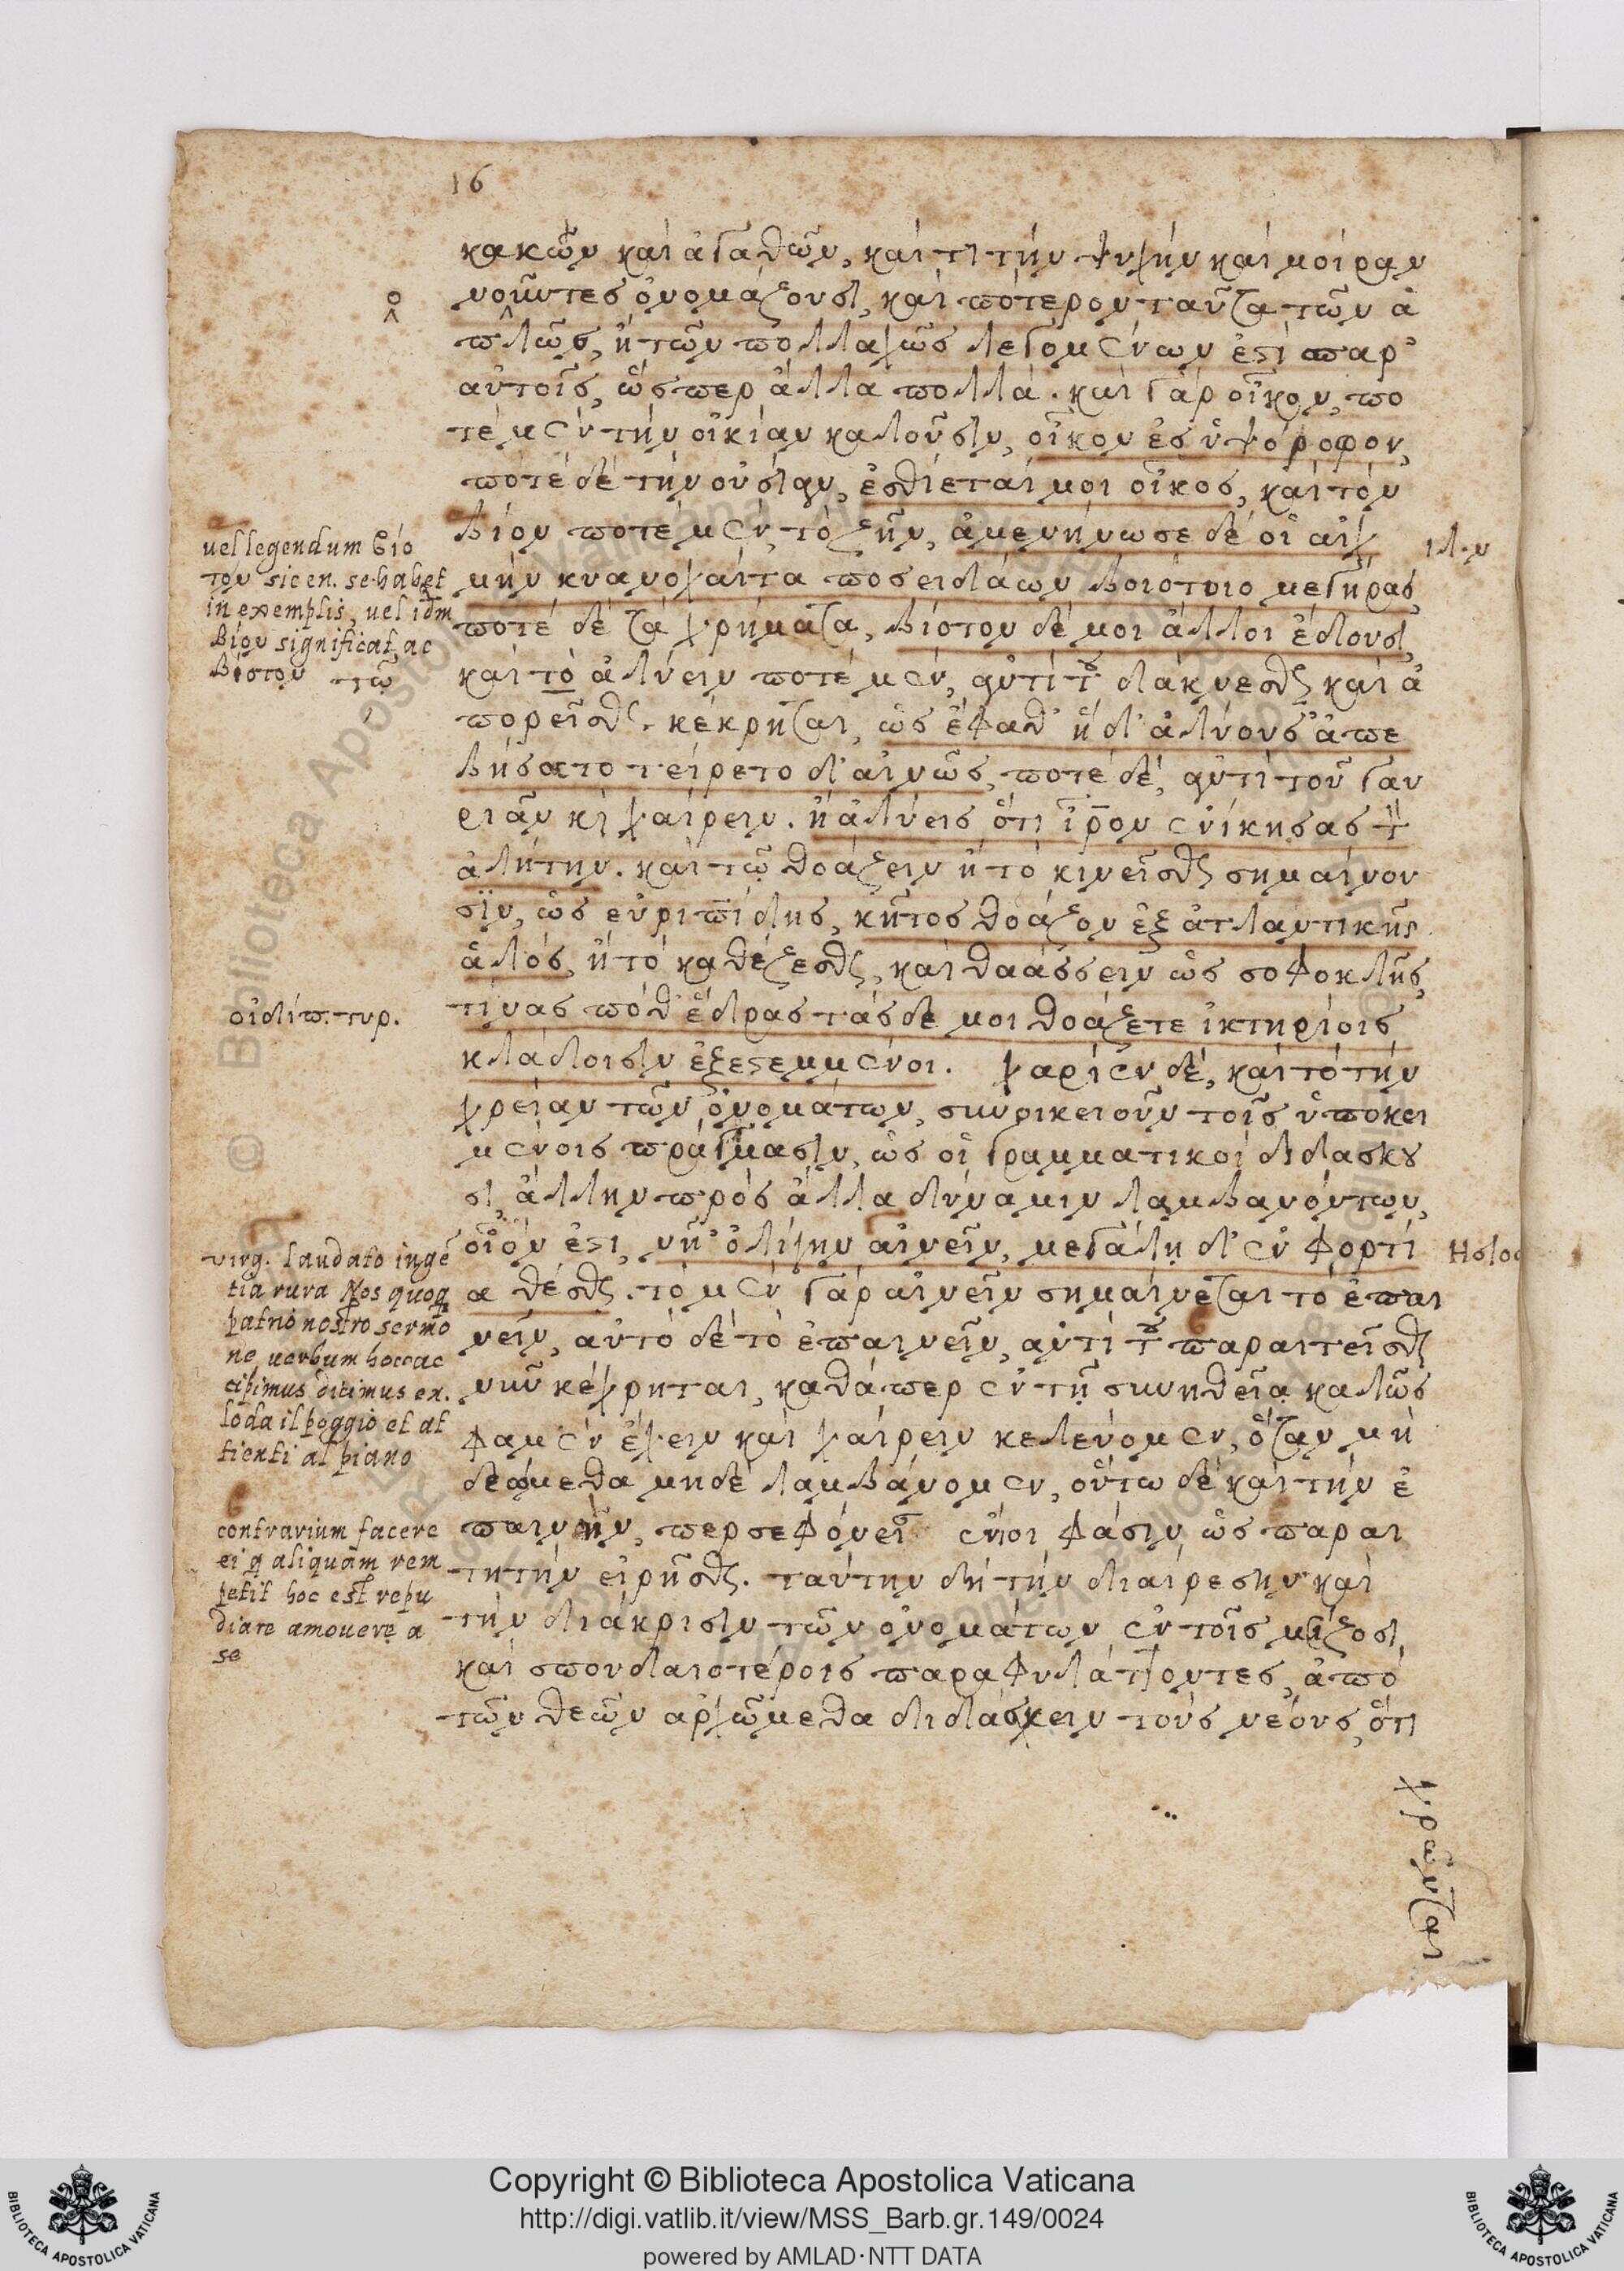 16
κακῶν καὶ ἀγαθῶν, καὶ τί τὴν ψυχὴν καὶ μοίραν
νοῦντες ὀνομάζουσι, καὶ πότερον ταῦτα τῶν ἁ
πλῶς, ἢ τῶν πολλαχῶς λεγομένων ἐστὶ παρ᾽
αὐτοῖς, ὥσπερ ἄλλα πολλά. καὶ γὰρ οἶκον, πο
τὲ μὲν τὴν οἰκίαν καλοῦσιν, οἶκον ἐς ὑψόροφον,
ποτὲ δὲ τὴν οὐσίαν, ἐσθίεταί μοι οἶκος, καὶ τὸν
βίον ποτὲ μὲν, τὸ ζῆν, ἀμενήνωσε δέ οἱ αἰχ
μὴν κυανοχαίτα ποσειδάων βιότοιο μεγήρας,
ποτὲ δὲ τὰ χρήματα, βίοτον δέ μοι ἄλλοι ἔδουσι,
καὶ τὸ ἀλύειν ποτὲ μὲν, ἀντὶ τοῦ δάκνεσθαι καὶ ἀ
πορεῖσθαι κέκρηται, ὣς ἔφαθ᾽ ἡ δ᾽ ἀλύουσ᾽ ἀπε
βήσατο τείρετο δ᾽ αἰνῶς, ποτὲ δέ, ἀντὶ τοῦ γαυ
ριᾶν κὶ χαίρειν. ἢ ἀλύεις ὅτι ἶρον ἐνίκησας τὸν
ἀλήτην. καὶ τῷ θοάζειν ἢ τὸ κινεῖσθαι σημαίνου
σϊν, ὡς εὐριπίδης, κῆτος θοάζον ἐξ ἀτλαντικῆς
ἁλός, ἢ τὸ καθέζεσθαι, καὶ θαάσσειν ὡς σοφοκλῆς,
τίνας πόθ᾽ ἕδρας τάσδε μοι θοάζετε ἱκτηρίοις
κλάδοισιν ἐξεστεμμένοι. χαρίεν δέ, καὶ τὸ τὴν
χρείαν τῶν ὀνομάτων, συνοικειοῦν τοῖς ὑποκει
μένοις πράγμασιν, ὡς οἱ γραμματικοὶ διδάσκου
σι, ἄλλην πρὸς ἄλλα δύναμιν λαμβανόντων,
οἷόν ἐστι, νῆ᾽ ὀλίγην αἰνεῖν, μεγάλῃ δ᾽ ἐν φορτί
α θέσθαι. τὸ μὲν γὰρ αἰνεῖν σημαίνεται τὸ ἐπαι
νεῖν, αὐτὸ δὲ τὸ ἐπαινεῖν, ἀντὶ τοῦ παραιτεῖσθαι
νῦν κέχρηται, καθάπερ ἐν τῇ συνηθείᾳ καλῶς
φαμὲν ἔχειν καὶ χαίρειν κελεύομεν, ὅταν μὴ
δεώμεθα μηδὲ λαμβάνομεν, οὕτω δὲ καὶ τὴν ἐ
παινὴν, περσεφόνει ἔνιοι φάσιν ὡς παραι
τητὴν εἰρῆσθαι. ταύτην δὴ τὴν διαίρεσην καὶ
τὴν διάκρισιν τῶν ὀνομάτων ἐν τοῖς μείζοσι,
καὶ σπουδαιοτέροις παραφυλάττοντες, ἀπὸ
τῶν θεῶν ἀρχώμεθα διδάσκειν τοὺς νέους, ὅτι
χρῶνται
ο
vel legendum βίο
τον sic en. se habet
in exemplis, vel idm
βίον significat, ac
βίοτον τῶ
ιλ.ν
οἰδίπ. τυρ.
virg. laudato ingē
tia rura Nos quoq
patrio nostro sermo
ne verbum hoc ac
cipimus dicimus en.
loda il poggio et at
tienti al piano
Ησιοδ
contrarium facere
ei q aliquam rem
petit hoc est repu
diare amovere a
se
Copyright © Biblioteca Apostolica Vaticana
http://digi.vatlib.it/view/MSS_Barb.gr.149/0024
powered by AMLAD·NTT DATA
BIBLIOTECA APOSTOLICA VATICANA
BIBLIOTECA APOSTOLICA VATICANA